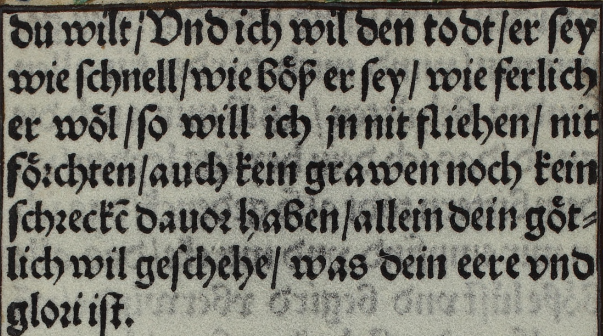 du wilt/Vnd ich wil den todt/er sey
wie schnell/wie böß er sey/ wie ferlich
er wöl/so will ich jn nit fliehen/ nit
förchten/auch kein grawen noch kein
schreckē dauor haben/allein dein göt⸗
lich wil geschehe/ was dein eere vnd
glori ist.